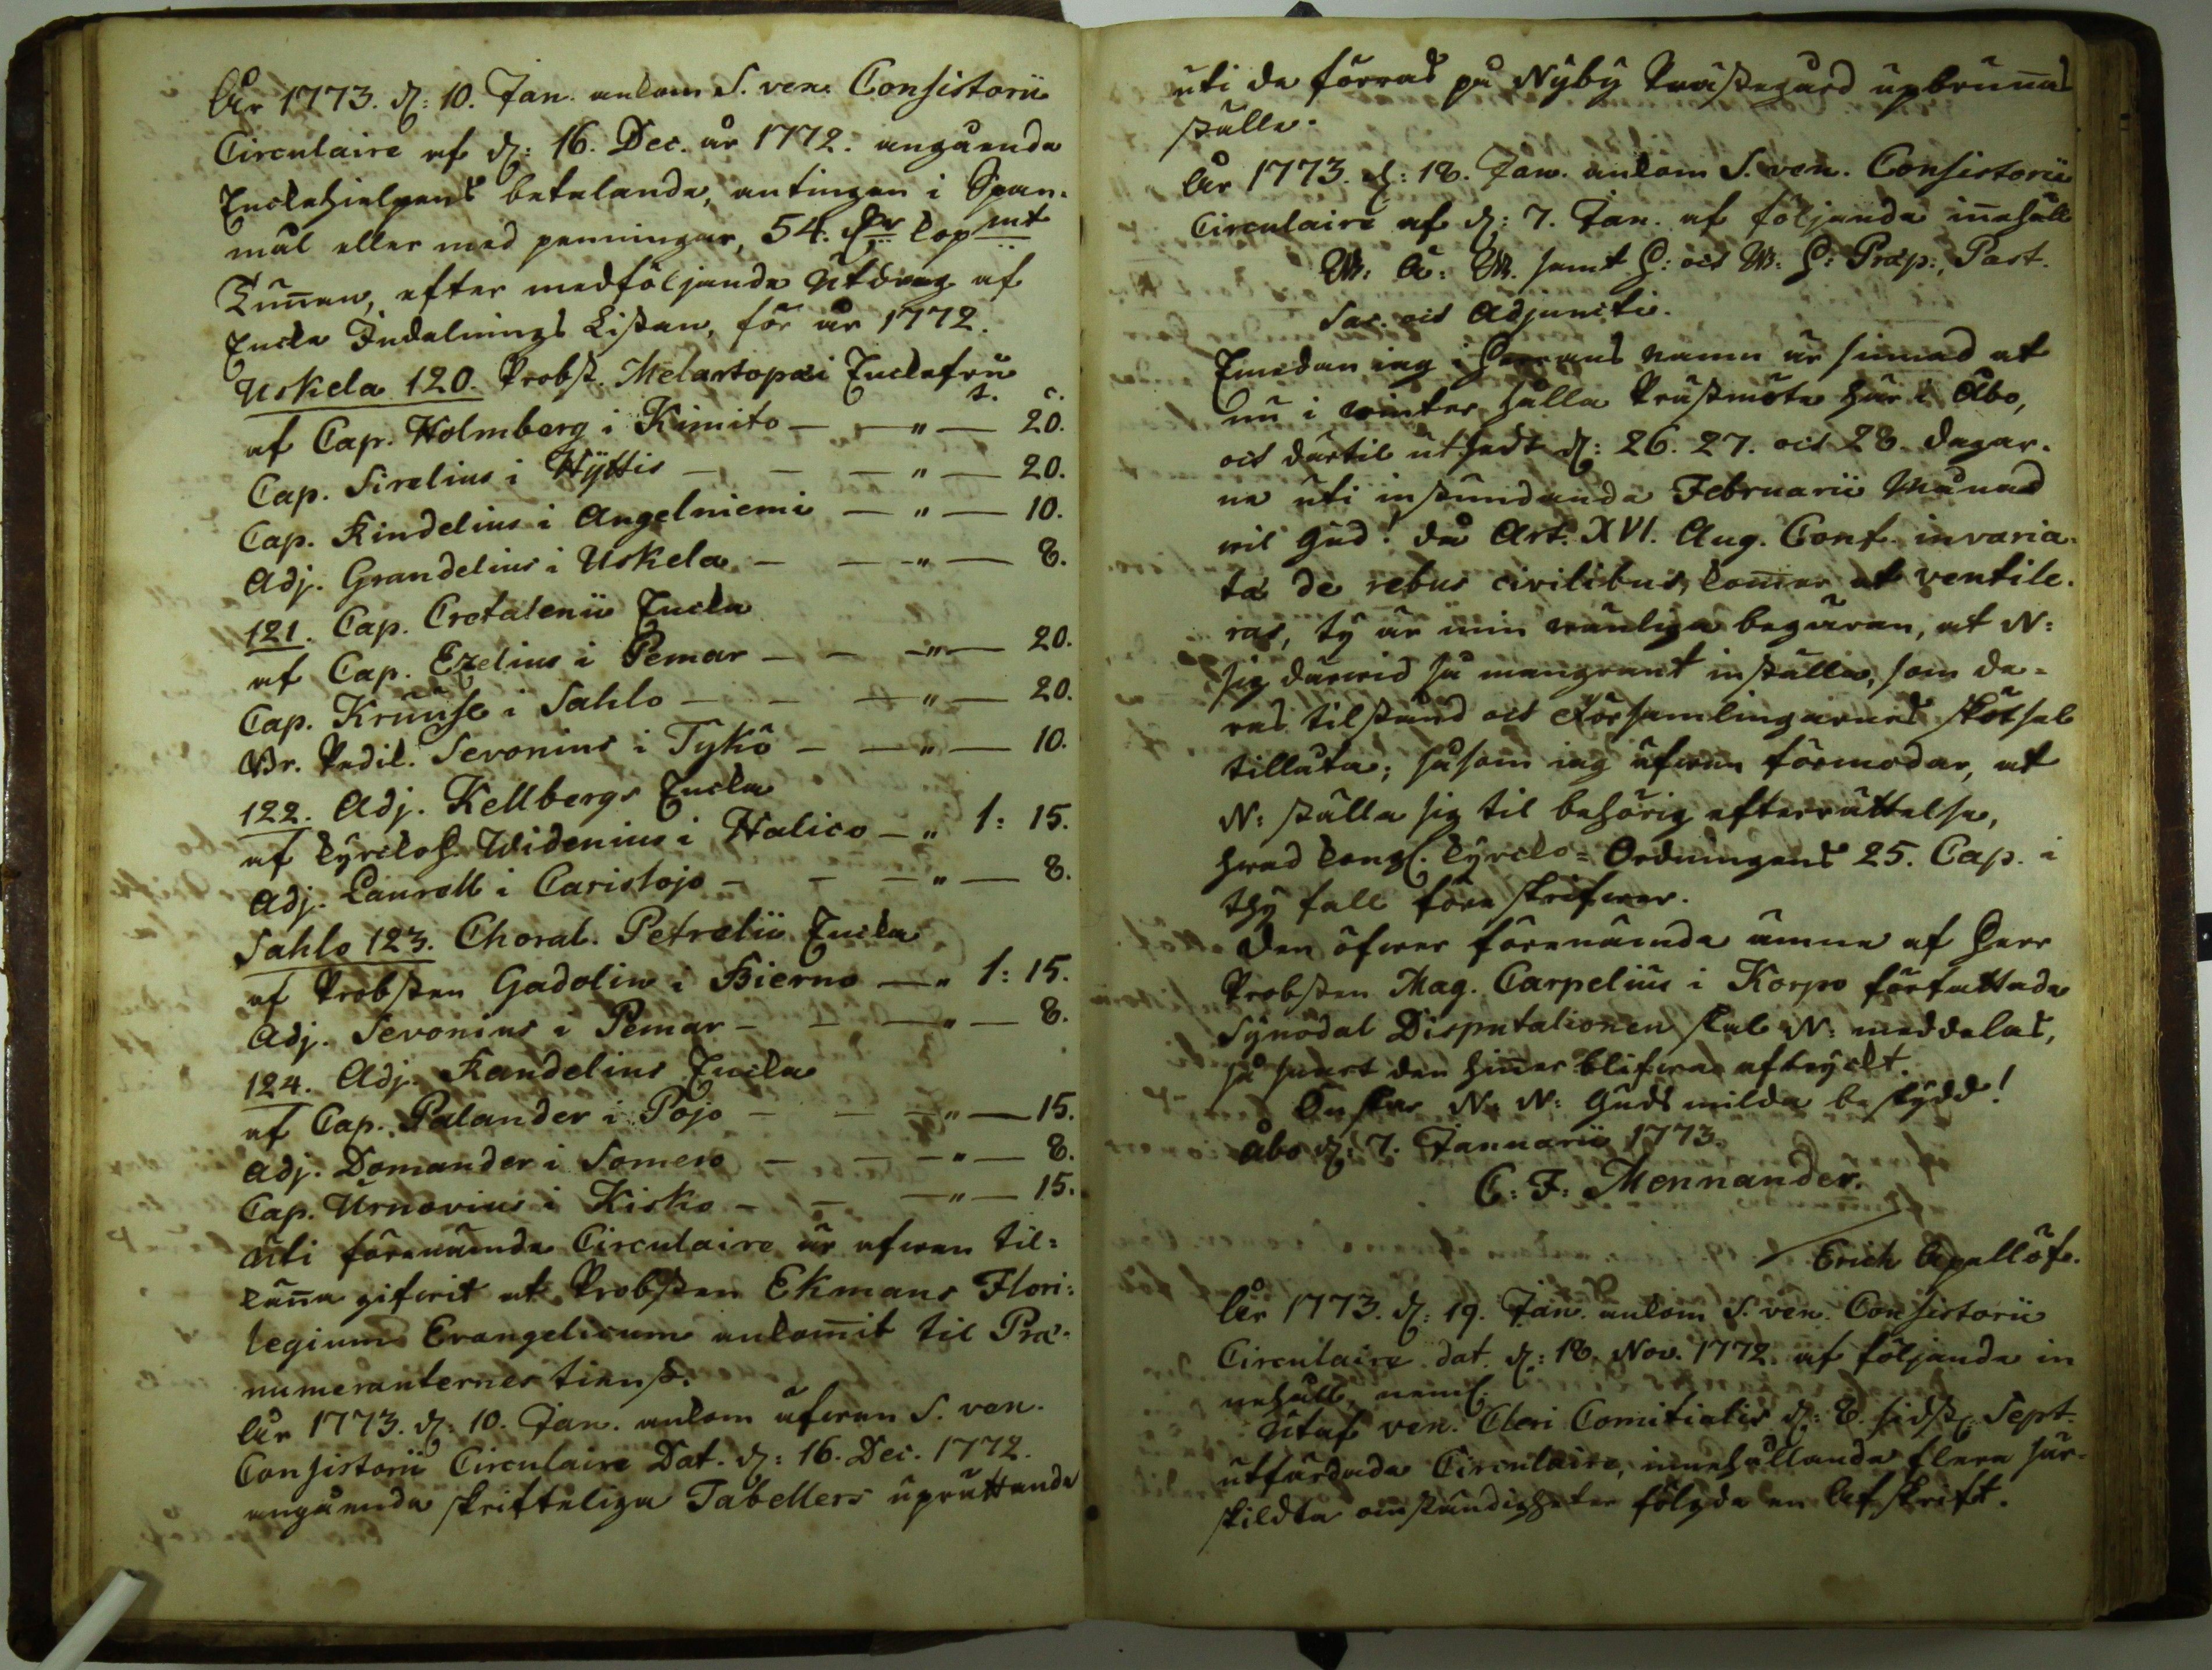 År 1773. d: 10. Jan. ankom S. ven. Consistorii
Circulaire af d: 16. Dec. år 1772. angående
Enckehielpens betalande, antingen i Span-
mål eller med penningar, 54. dlr kopmt
Tunnan, efter medföljande Utdrag af
Encke Indelnings Listan, för år 1772.
Uskela 120. Probst. Melartopæi Enckefru
t. c.
af Cap. Holmberg i Kimito — — " — 20.
Cap. Sirelius i Hyttis — — — " — 20.
Cap. Kindelius i Angelniemi — " — 10.
Adj. Grandelius i Uskela — — " — 8.
121. Cap. Cretalenii Encka
af Cap. Ezelius i Pemar — — " — 20.
Cap. Kruuse i Sahlo — — — " — 20.
Br. Predik. Sevonius i Tykö — — " — 10.
122. Adj. Kellbergs Encka
af Kyrckoh. Widenius i Halico — " 1: 15.
Adj. Laurell i Carislojo — — — " — 8.
Sahlo 123. Choral. Petrelii Encka
af Probsten Gadolin i Bierno — " 1: 15.
Adj. Sevonius i Pemar — — — " — 8.
124. Adj. Kandelius Encka
af Cap. Palander i Pojo — — — " — 15.
Adj. Domander i Somero — — — " — 8.
Cap. Urnovius i Kisko — — — " — 15.
Uti förenämnda Circulaire är äfwen til=
känna gifwit at Probsten Ekmans Flori=
legium Evangelicum ankommit til Præ=
numeranternes tienst.
År 1773. d: 10. Jan. ankom äfwen S. ven.
Consistorii Circulaire Dat. d: 16. Dec. 1772.
angående skrifteliga Tabellers uprättande
uti de förras på Nyby Prästegård upbrunnas
ställe.
År 1773. d: 18. Jan. ankom S. ven. Consistorii
Circulaire af d: 7. Jan. af följande innehåll
W: Ä: W. samt H: och W: H: Præp:, Past.
Sac. och Adjuncti.
Emedan iag i Herrans namn är sinnad at
nu i winter hålla Prästmöte här i Åbo,
och därtil utsedt d: 26. 27. och 28. dagar-
na uti instundande Februarii Månad
wil Gud! då Art. XVI. Aug. Conf. invaria-
tæ de rebus civilibus, kommer at ventile-
ras, ty är min wänliga begäran, at N:
sig därwid så mangrant inställa, som de=
ras tilstånd och Församlingarnes skötsel
tillåta; såsom iag äfwen förmodar, at
N: ställa sig til behörig efterrättelse,
hwad Kongl. Kyrcko=Ordningens 25. Cap. i
thy fall föreskrifwer.
Den öfwer förenämnde ämne af Herr
Probsten Mag. Carpelius i Korpo författade
Synodal Disputationen skal N: meddelas,
så snart den hinner blifwa aftryckt.
Önskar N. N: Guds milda beskydd!
Åbo d: 7. Januarii 1773.
C: F: Mennander.
Erich Apellöf.
År 1773. d: 19. Jan. ankom S. ven. Consistorii
Circulaire dat. d: 18. Nov. 1772. af följande in
nehåll, neml.
Utaf ven. Cleri Comitialis d: 8. sidstl. Sept.
utfärdade Circulaire, innehållande flera sär-
skildta omständigheter fölgde en Afskrift.